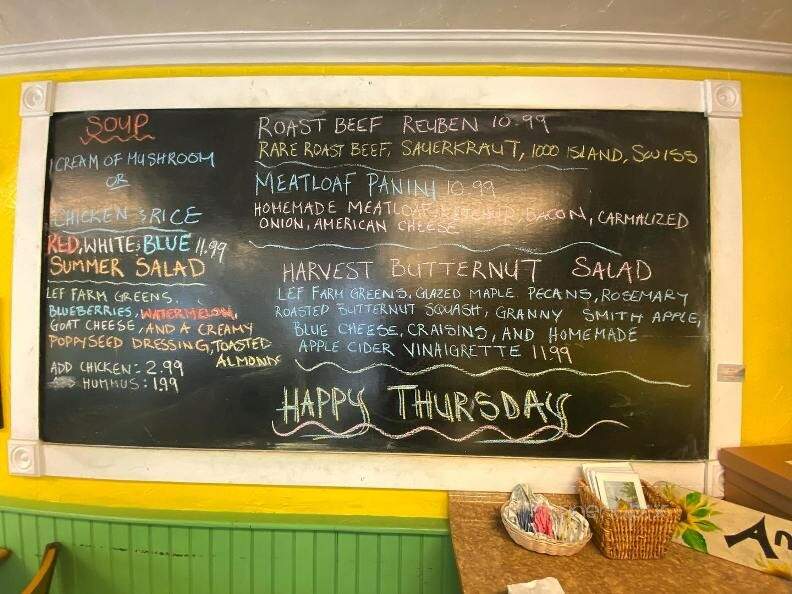 SOUP
CREAM OF MUSHROOM
OR
CHICKEN & RICE
RED, WHITE & BLUE 11.99
SUMMER SALAD
LEF FARM GREENS,
BLUEBERRIES, WATERMELON,
GOAT CHEESE, AND A CREAMY
POPPYSEED DRESSING, TOASTED
ALMONDS
ADD CHICKEN: 2.99
ADD HUMMUS: 1.99
ROAST BEEF REUBEN 10.99
RARE ROAST BEEF, SAUERKRAUT, 1000 ISLAND, SWISS
MEATLOAF PANINI 10.99
HOMEMADE MEATLOAF, KETCHUP, BACON, CARMALIZED
ONION, AMERICAN CHEESE
HARVEST BUTTERNUT SALAD
LEF FARM GREENS, GLAZED MAPLE PECANS, ROSEMARY
ROASTED BUTTERNUT SQUASH, GRANNY SMITH APPLE,
BLUE CHEESE, CRAISINS, AND HOMEMADE
APPLE CIDER VINAIGRETTE 11.99
HAPPY THURSDAY